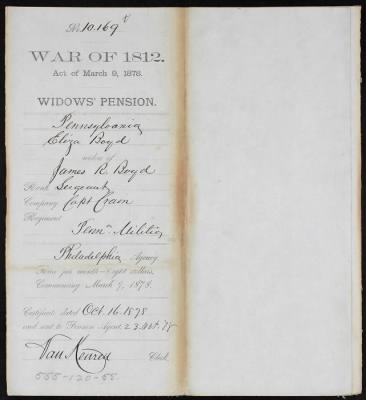 No. 10.169
WAR OF 1812.
Act of March 9, 1878.
WIDOWS' PENSION.
Pennsylvania
Eliza Boyd
widow of
James R. Boyd
Rank Sergeant
Company Capt Crain
Regiment
Penn. Militia
Philadelphia Agency.
Rate per month—Eight dollars,
Commencing March 9, 1878.
Certificate dated Oct. 16. 1878
and sent to Pension Agent, 23. Oct. 78
Clerk.
555-120-55.